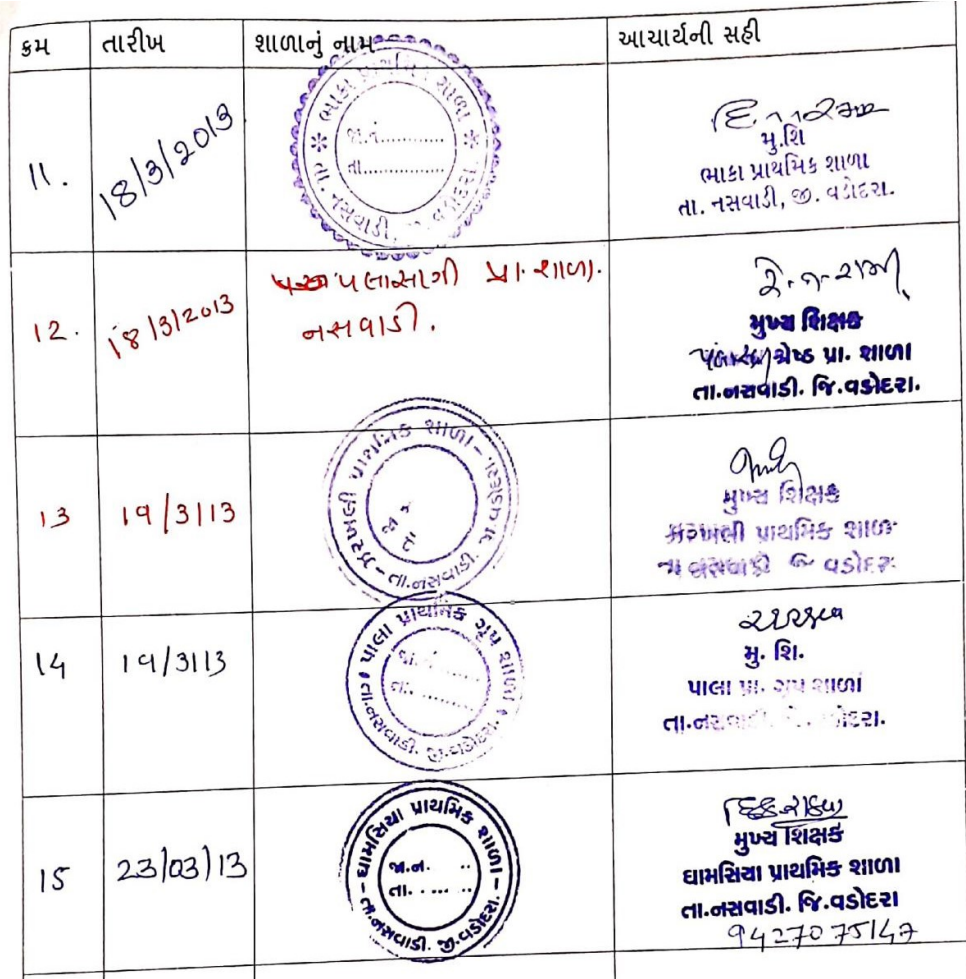 ક્રમ તારીખ શાળાનું નામ આચાર્યની સહી
11. 18/3/2013 ભાકા પ્રાથમિક શાળા
તા. નસવાડી, જી. વડોદરા.
જા.નં............
તા...............
મુ.શિ
ભાકા પ્રાથમિક શાળા
તા. નસવાડી, જી. વડોદરા.
12. 18/3/2013 પલાસણી પ્રા. શાળા.
નસવાડી.
મુખ્ય શિક્ષક
શ્રેષ્ઠ પ્રા. શાળા
તા.નસવાડી. જિ.વડોદરા.
13 19/3/13 કરખલી પ્રાથમિક શાળા - તા.નસવાડી. જી.વડોદરા
મુખ્ય શિક્ષક
કરખલી પ્રાથમિક શાળા
તા નસવાડી જિ વડોદરા
14 19/3/13 પાલા પ્રાથમિક ગૃપ શાળા
તા.નસવાડી. જી.વડોદરા.
જા.નં.......
તા........
મુ. શિ.
પાલા પ્રા. ગૃપ શાળા
તા.નસવાડી. જિ. વડોદરા.
15 23/03/13 ઘામસિયા પ્રાથમિક શાળા - તા.નસવાડી. જી.વડોદરા.
જા.નં. ..
તા. . ... ..
મુખ્ય શિક્ષક
ઘામસિયા પ્રાથમિક શાળા
તા.નસવાડી. જિ.વડોદરા
9427075147